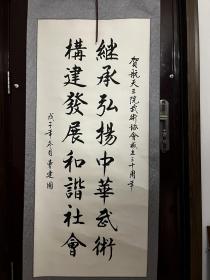 賀航天三院武術協會成立三十周年
繼承弘揚中華武術
構建發展和諧社會
戊子年冬月 曹建國